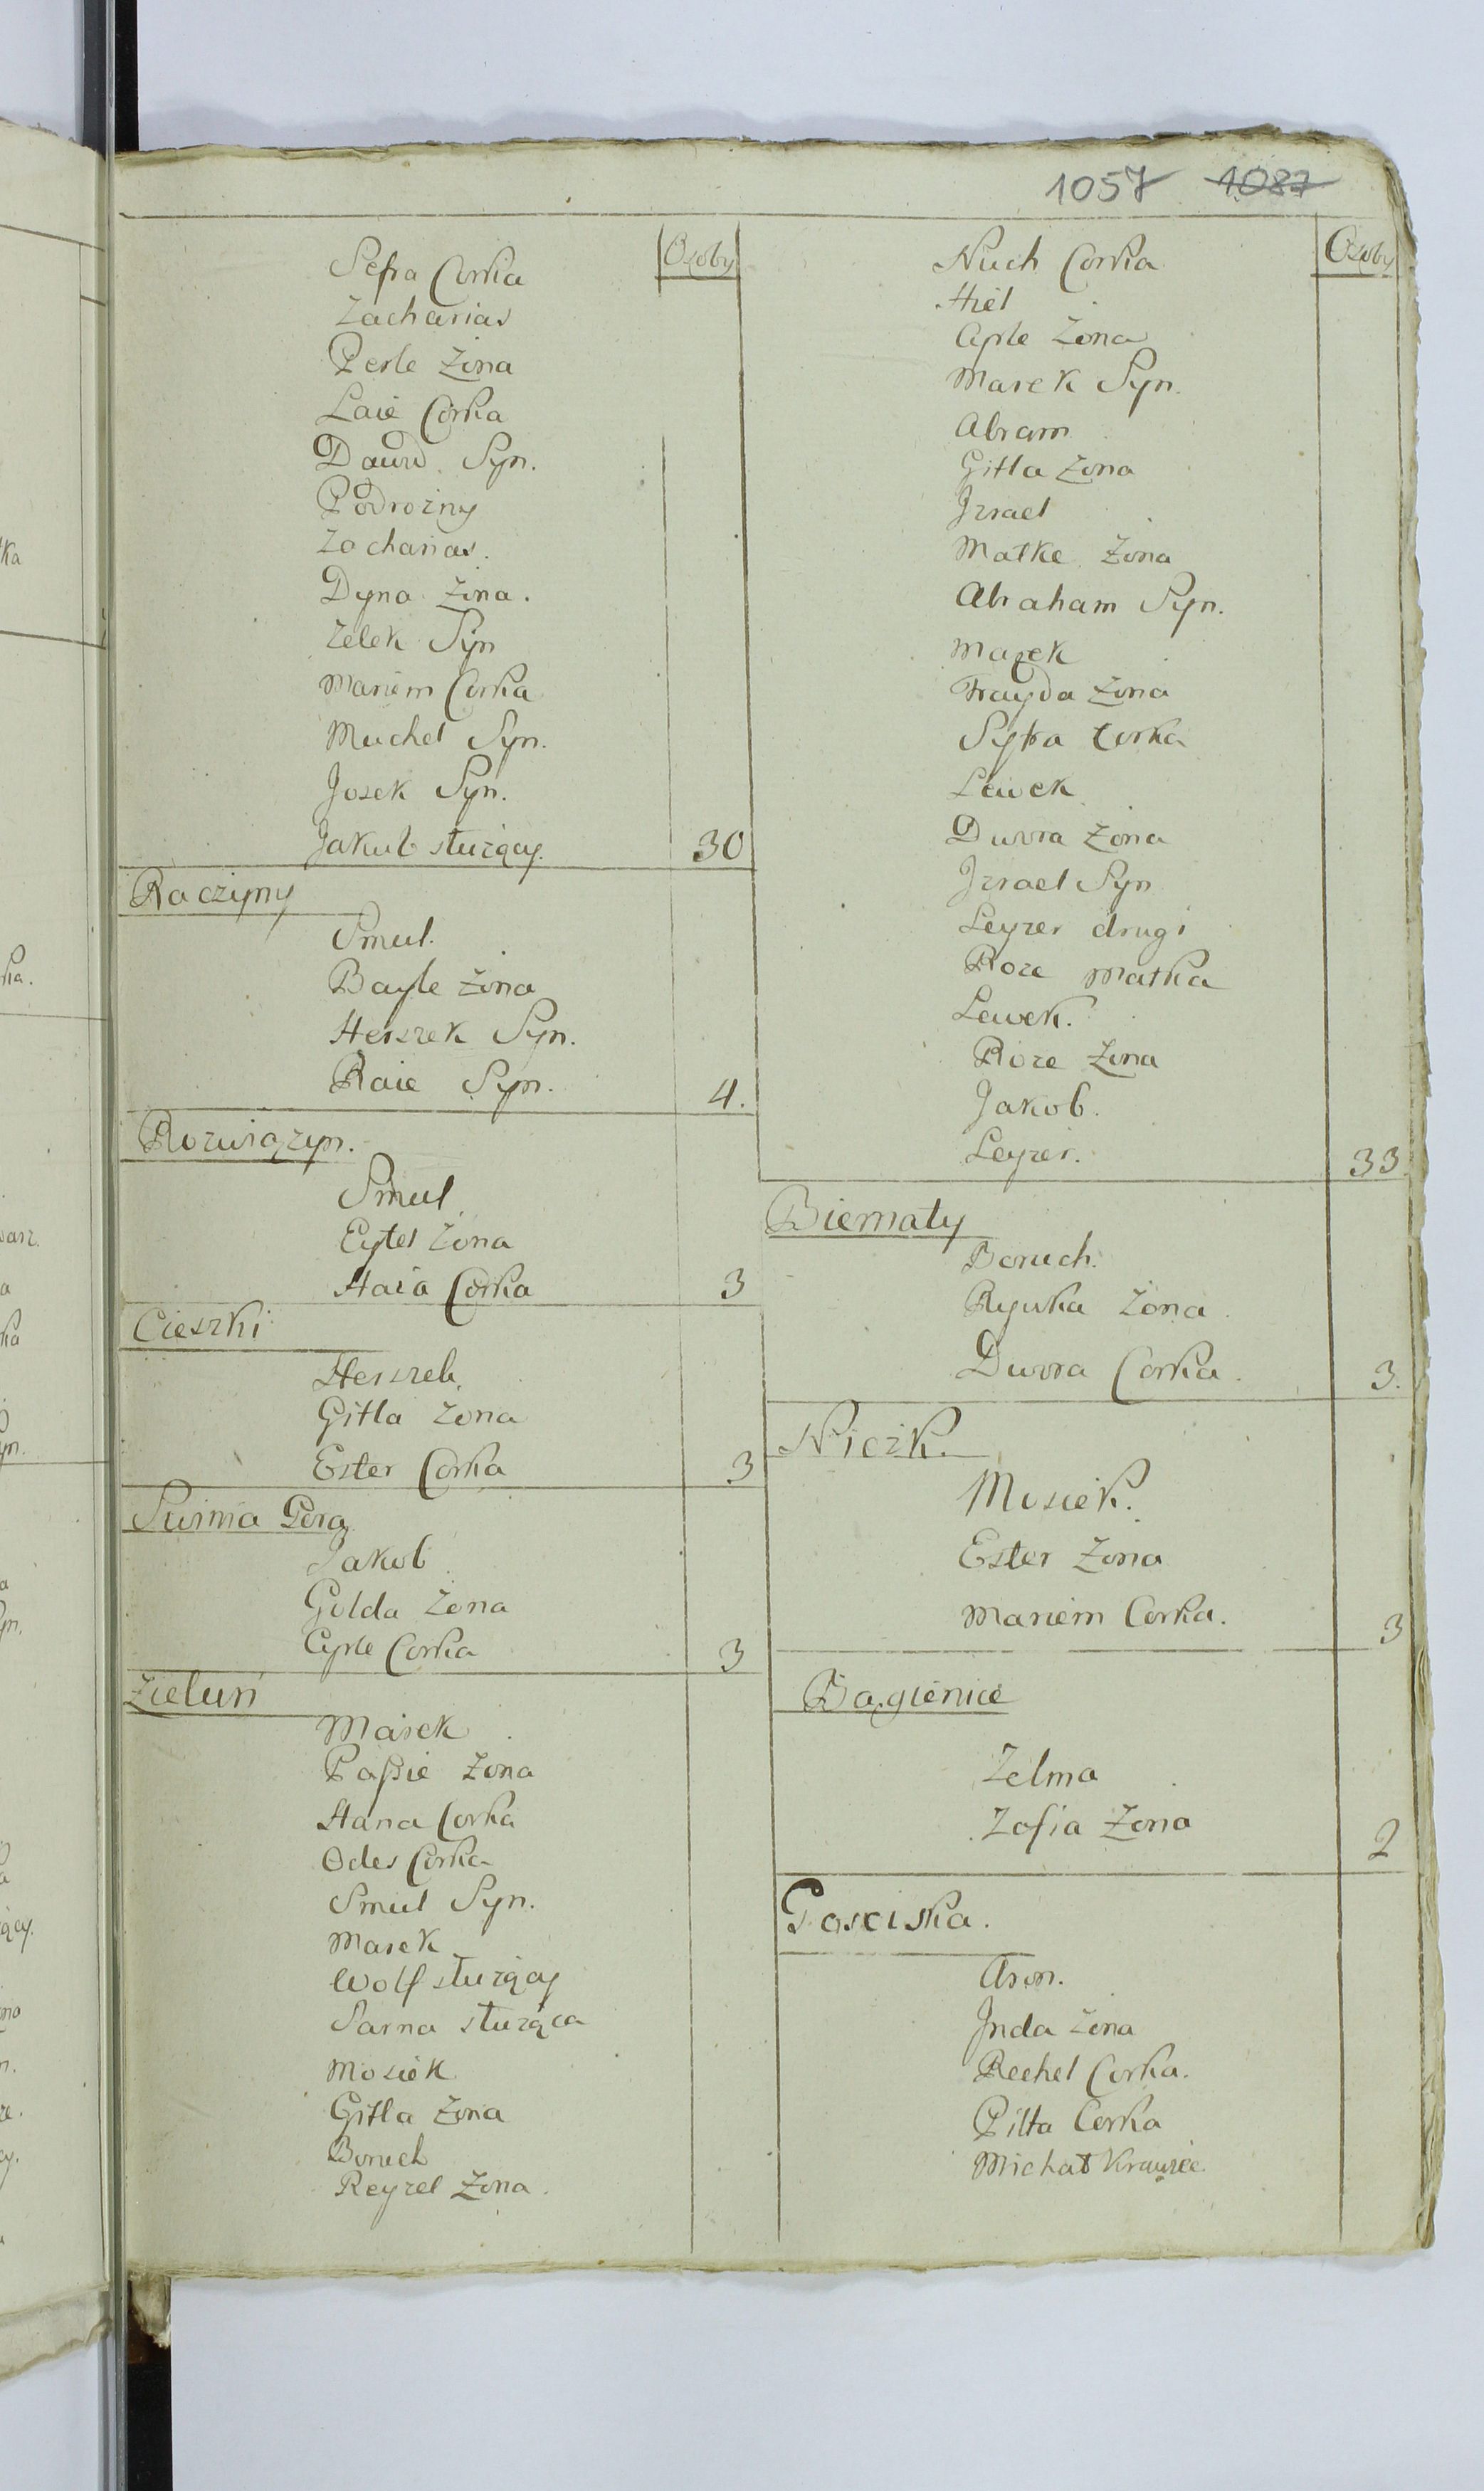 1057 1087
Osoby
Sefra Corka
Zacharias
Perle Żona
Laie Corka
Dawid Syn.
Podrożny
Zacharias.
Dyna Żona.
Zelek Syn
Mariem Corka
Muchel Syn.
Josek Syn.
Jakub służący. 30
Raczyny
Smul.
Bayle Żona
Herszek Syn.
Raie Syn. 4.
Rozwiązyn.
Smul
Eytel Żona
Haia Corka 3
Cieszki
Herszek
Gitla Żona
Ester Corka 3
Surma Gora
Jakob
Golda Żona
Cyrle Corka 3
Zieluń
Marek
Passie Żona
Hana Corka
Odes Corka
Smul Syn.
Marek
Wolf służący
Sarna służąca
Mosiek
Gitla Żona
Boruch
Reyzel Żona.
Osoby
Nuch Corka
Hiel
Cyrle Żona
Marek Syn.
Abram
Gitla Żona
Izrael
Matke Żona
Abraham Syn.
Marek
Frayda Żona
Syfra Corka
Lewek
Dwora Żona
Izrael Syn
Leyzer drugi
Roze Matka
Lewek.
Roze Żona
Jakob.
Leyzer. 33
Biernaty
Boruch.
Rywka Żona
Dwora Corka. 3.
Niczk.
Mosiek.
Ester Żona
Mariem Corka. 3
Bagienice
Zelma
Zofia Żona 2
Gosciska.
Aron.
Inda Żona
Rechel Corka.
Pilta Corka
Michał Krawiec.